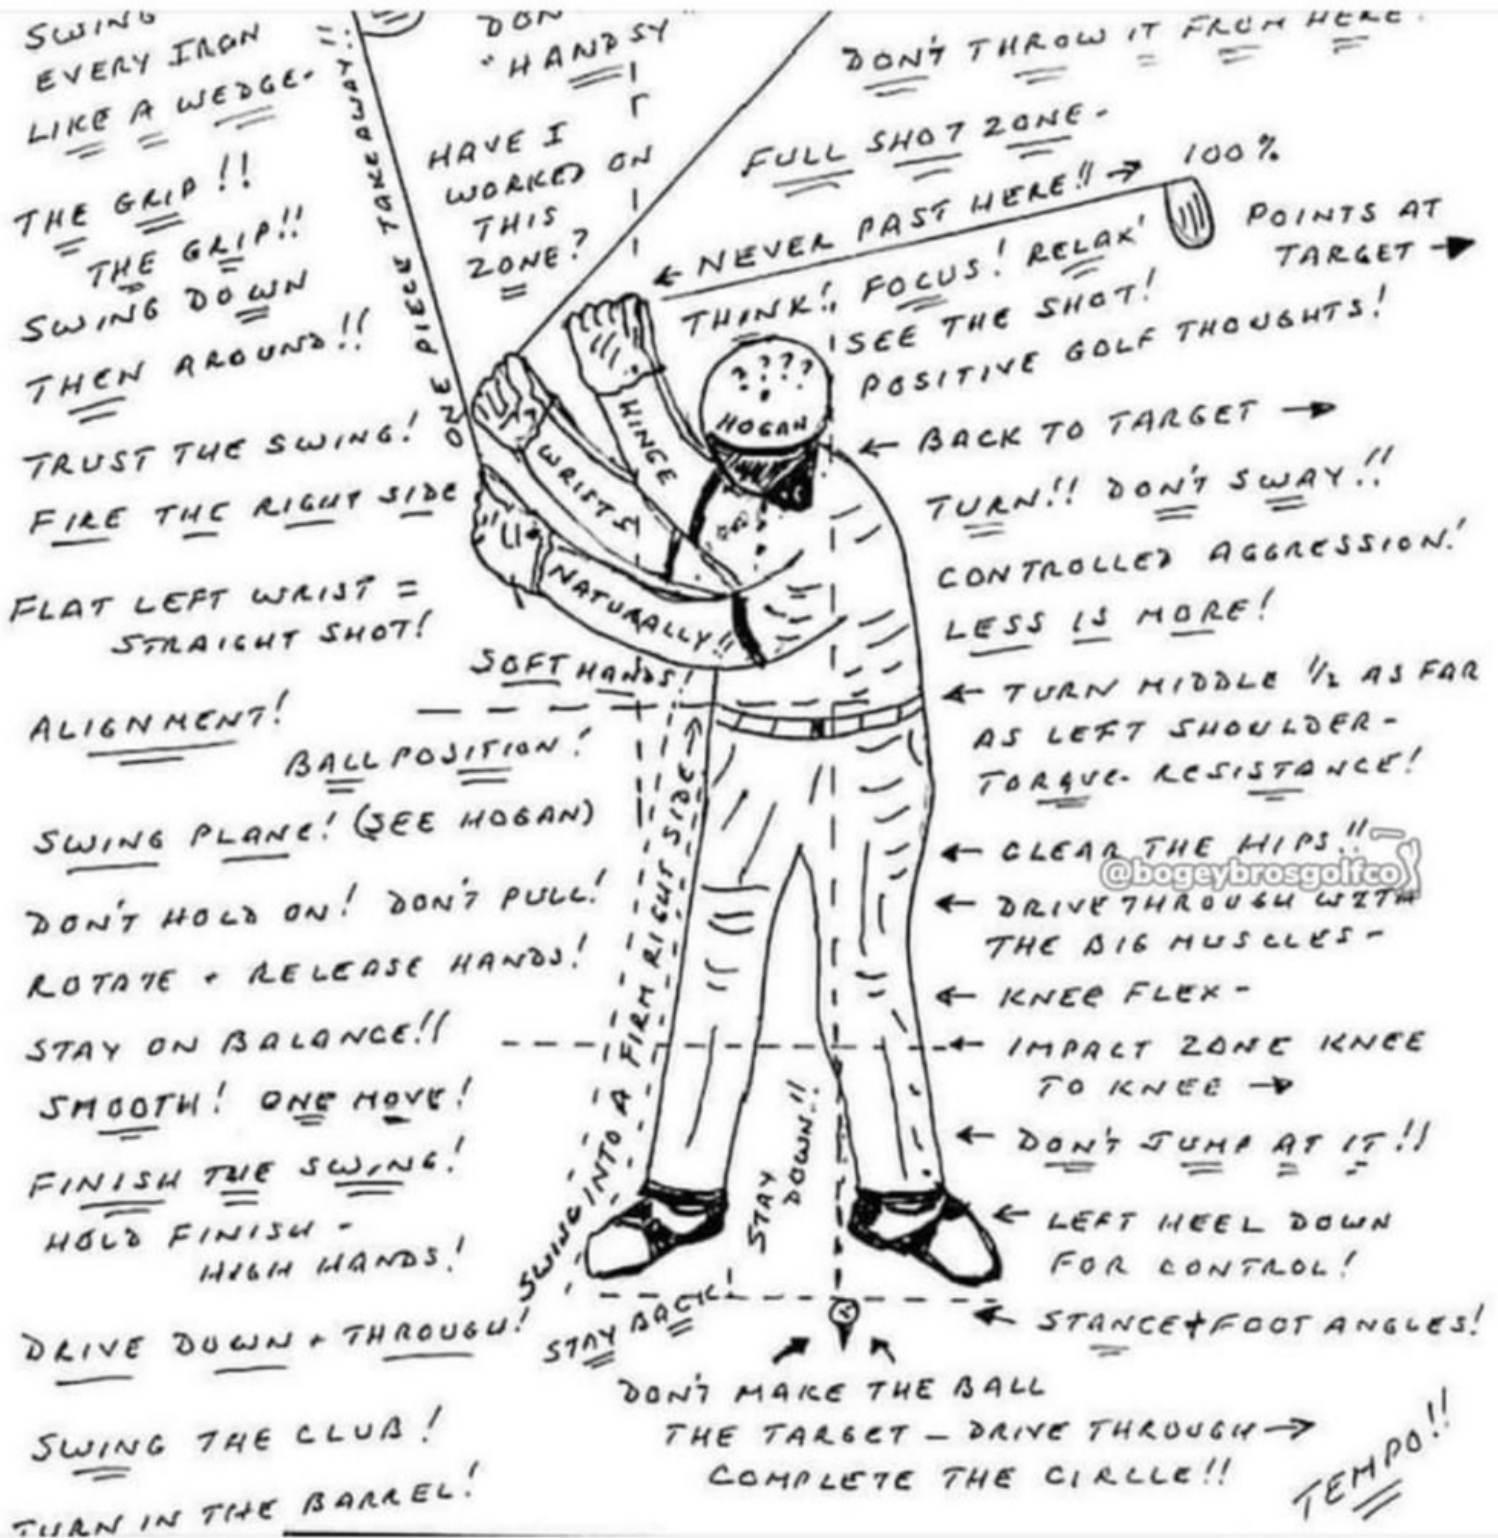 SWING
EVERY IRON
LIKE A WEDGE.
THE GRIP!!
THE GRIP!!
SWING DOWN
THEN AROUND!!
TRUST THE SWING!
FIRE THE RIGHT SIDE
FLAT LEFT WRIST =
STRAIGHT SHOT!
ALIGNMENT!
BALL POSITION!
SWING PLANE! (SEE HOGAN)
DON'T HOLD ON! DON'T PULL!
ROTATE + RELEASE HANDS!
STAY ON BALANCE!!
SMOOTH! ONE MOVE!
FINISH THE SWING!
HOLD FINISH -
HIGH HANDS!
DRIVE DOWN + THROUGH!
SWING THE CLUB!
TURN IN THE BARREL!
ONE PIECE TAKEAWAY!!
"HANDSY"
HAVE I
WORKED ON
THIS
ZONE?
DON'T THROW IT FROM HERE!
FULL SHOT ZONE -
← NEVER PAST HERE!! →
100%
POINTS AT
TARGET →
THINK!! FOCUS! RELAX!
SEE THE SHOT!
POSITIVE GOLF THOUGHTS!
? ? ? ?
HOGAN
HINGE
WRISTS
NATURALLY!!
SOFT HANDS!
← BACK TO TARGET →
TURN!! DON'T SWAY!!
CONTROLLED AGGRESSION!
LESS IS MORE!
← TURN MIDDLE 1/2 AS FAR
AS LEFT SHOULDER -
TORQUE - RESISTANCE!
← CLEAR THE HIPS!!
@bogeybrosgolfco
← DRIVE THROUGH WITH
THE BIG MUSCLES -
← KNEE FLEX -
← IMPACT ZONE KNEE
TO KNEE →
← DON'T JUMP AT IT!!
← LEFT HEEL DOWN
FOR CONTROL!
← STANCE + FOOT ANGLES!
SWING INTO A FIRM RIGHT SIDE →
STAY
DOWN!!
STAY BACK!
DON'T MAKE THE BALL
THE TARGET - DRIVE THROUGH →
COMPLETE THE CIRCLE!!
TEMPO!!